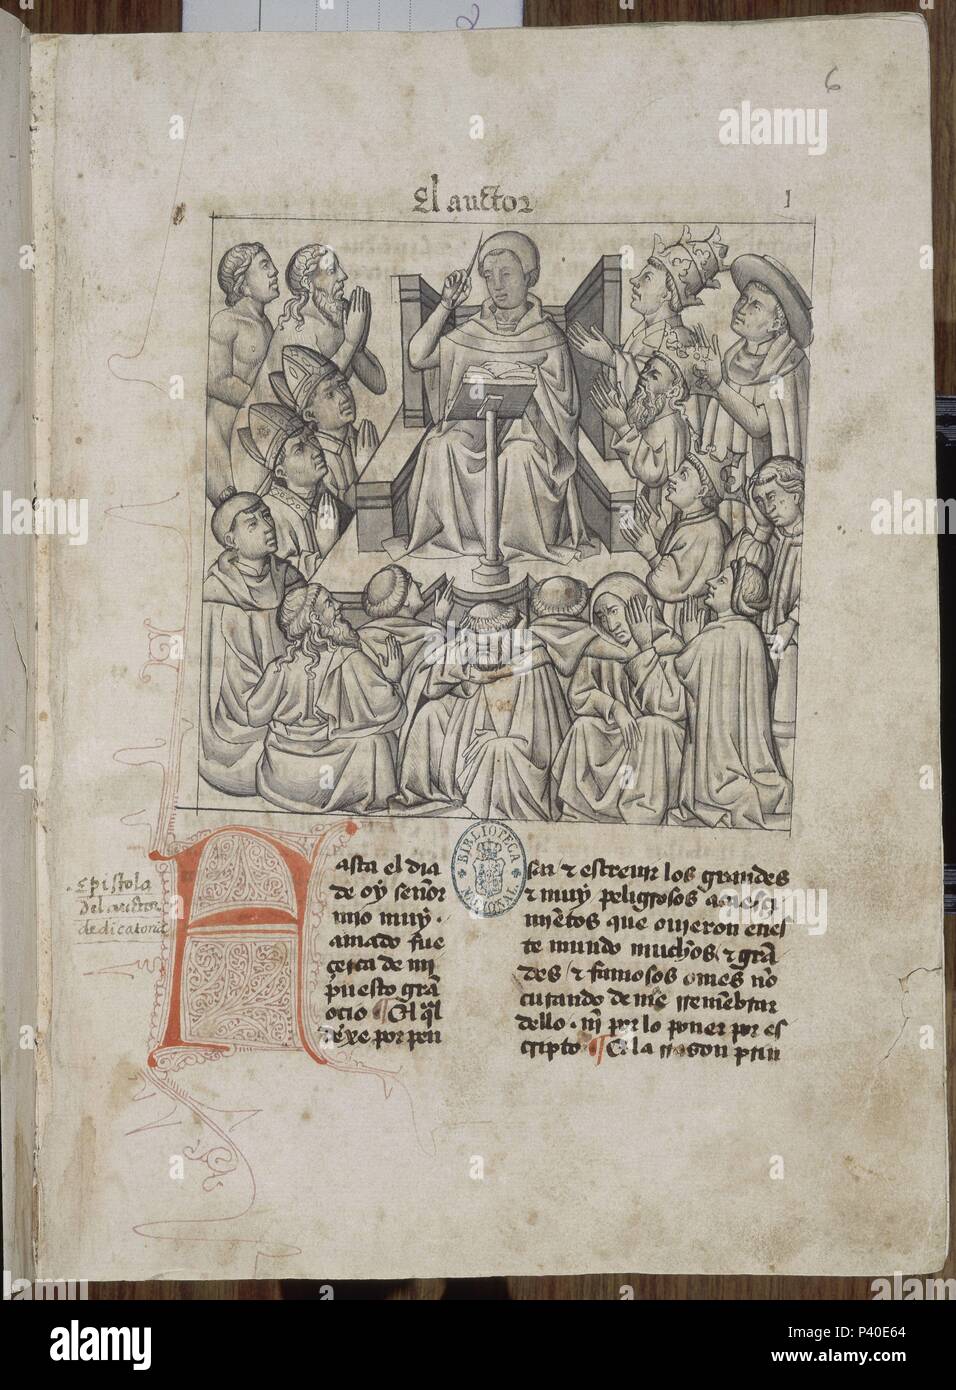 6
El auctor
I
Epistola
del auctor
dedicatoria
Hasta el dia
de oy señor
mio muy
amado fue
çerca de mi
puesto grã
oçio ¶ El q̃l
dexe por pen
sar & escreuir los grandes
& muy peligrosos acaesçi
miẽtos que ouieron en es
te mundo muchos & grã
des / & famosos omẽs nõ
curando de me rremẽbrar
dello . nĩ por lo poner por es
cripto ¶ E la rrason prin
BIBLIOTECA
NACIONAL
alamy
Image ID: P40E64
www.alamy.com